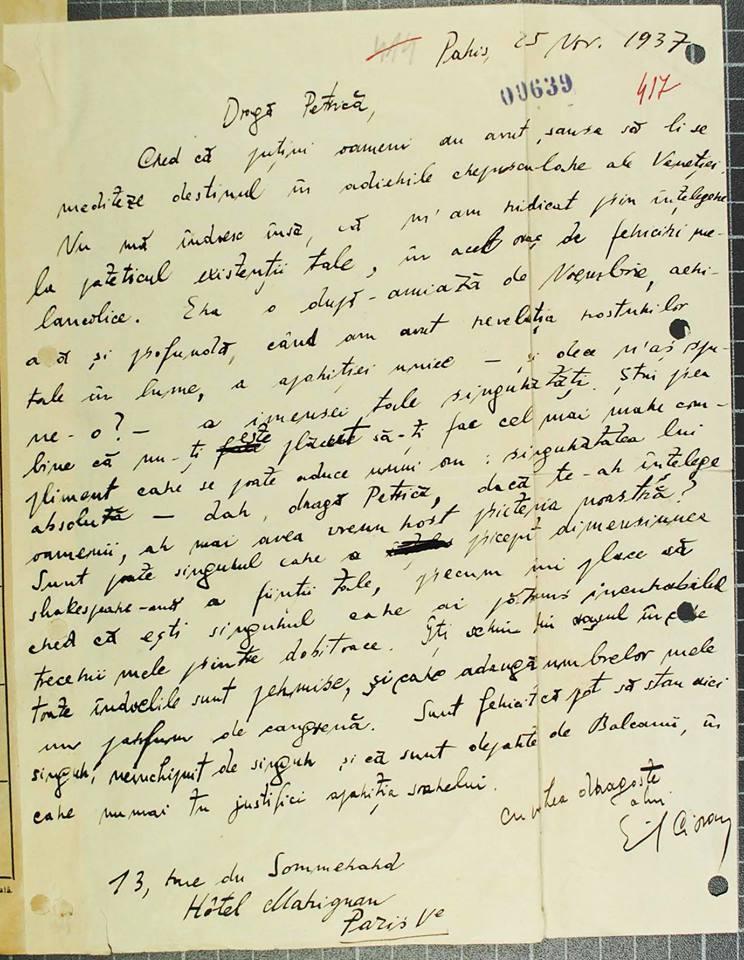 419
Paris, 25 Nov. 1937
00639
417
Dragă Petrică,
Cred că puțini oameni au avut șansa să li se
mediteze destinul în adierile crepusculare ale Veneției.
Nu mă îndoesc însă, că m'am ridicat prin înțelegere
la pateticul existenții tale, în acel oraș de fericiri me-
lancolice. Era o după-amiază de Noembrie,
și profundă, când am avut revelația rosturilor
tale în lume, a apariției unice — și dece n'aș spu-
ne-o? — a imensei tale singurătăți. Știi prea
bine că nu-ți este placut să-ți fac cel mai mare com-
pliment care se poate aduce unui om: singurătatea lui
absolută — dar, dragă Petrică, dacă te-ar înțelege
oamenii, ar mai avea vreun rost prietenia noastră?
Sunt poate singurul care a priceput dimensiunea
shakespeare-ană a ființii tale, precum îmi place să
cred că ești singurul care ai pătruns incurabilul
trecerii mele printre dobitoace. Îți scriu din orașul în care
toate îndoelile sunt permise, și care adaugă umbrelor mele
un parfum de cangrenă. Sunt fericit că pot să stau aici
singur, neînchipuit de singur și că sunt departe de Balcanii, în
care numai tu justifici apariția soarelui.
cu vechea dragoste
al tău
Emil Cioran
13, rue du Sommerard
Hôtel Marignan
Paris Ve